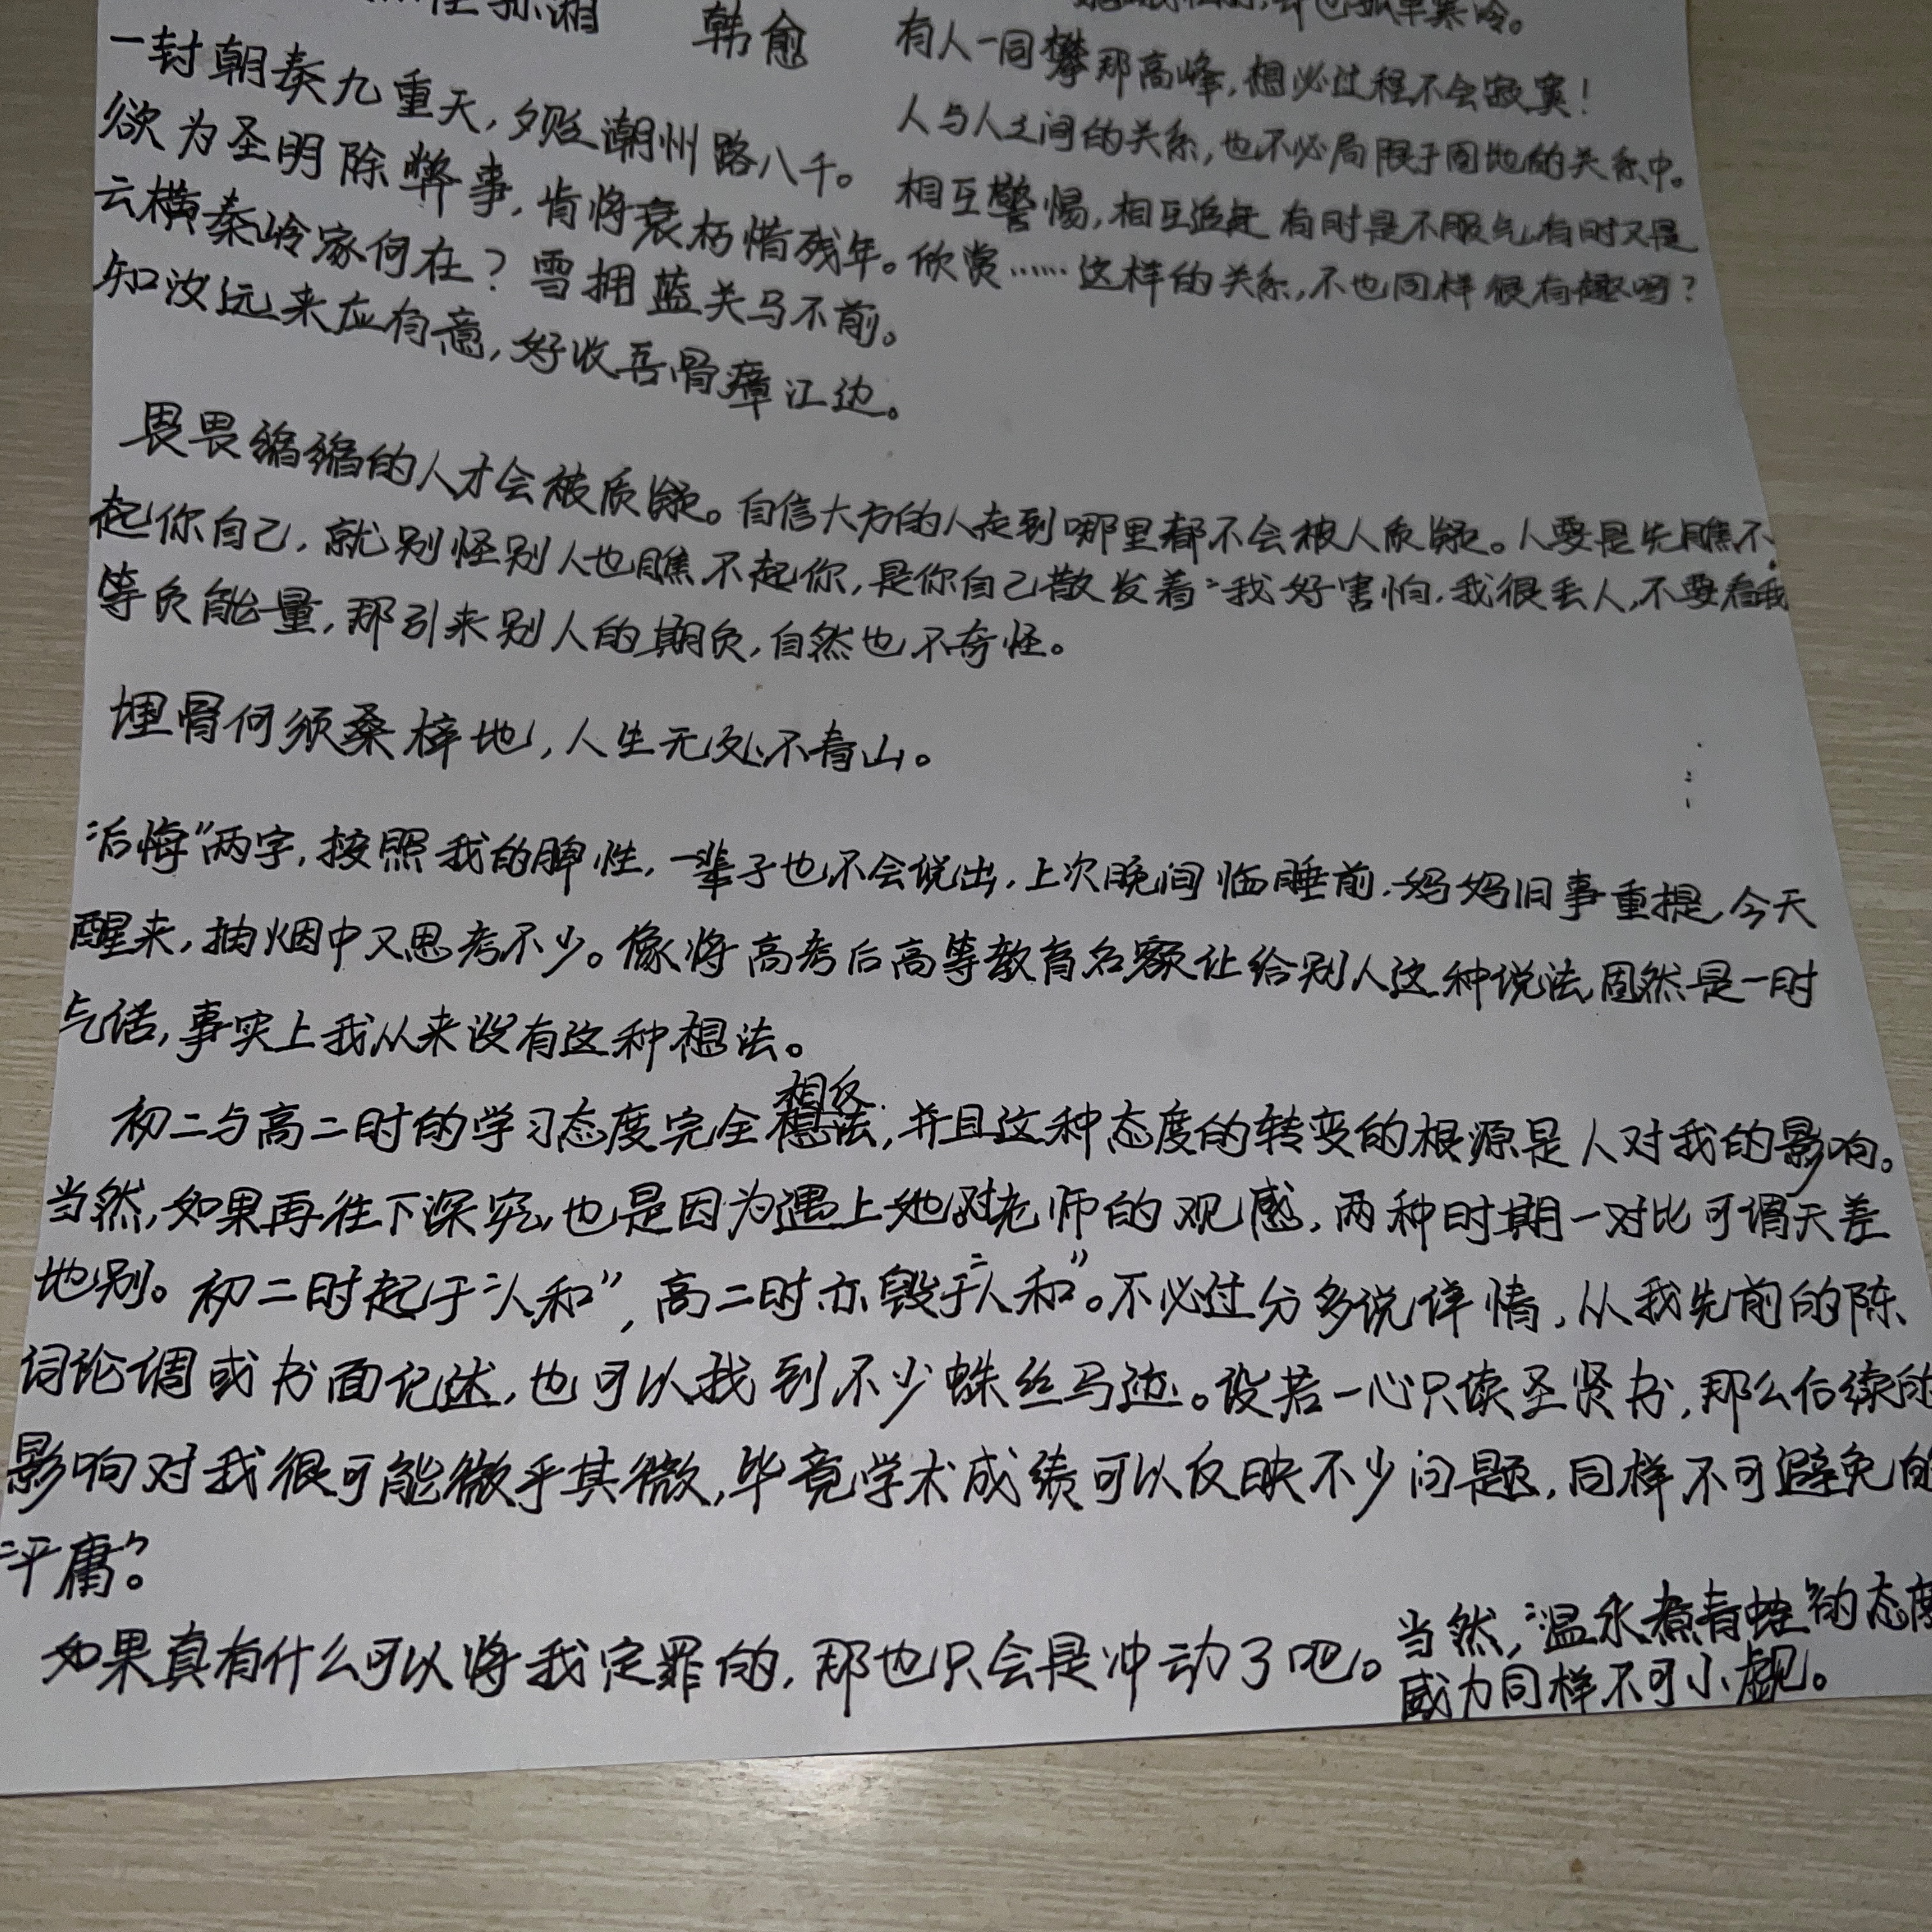 侄孙湘 韩愈
一封朝奏九重天，夕贬潮州路八千。
欲为圣明除弊事，肯将衰朽惜残年。
云横秦岭家何在？雪拥蓝关马不前。
知汝远来应有意，好收吾骨瘴江边。
孤单寒冷。
有人一同攀那高峰，想必过程不会寂寞！
人与人之间的关系，也不必局限于固地的关系中。
相互警惕，相互追赶 有时是不服气，有时又是
欣赏……这样的关系，不也同样很有趣吗？
畏畏缩缩的人才会被质疑。自信大方的人走到哪里都不会被人质疑。人要是先瞧不
起你自己，就别怪别人也瞧不起你，是你自己散发着“我好害怕，我很丢人，不要看我”
等负能量，那引来别人的期负，自然也不奇怪。
埋骨何须桑梓地，人生无处不青山。
“后悔”两字，按照我的脾性，一辈子也不会说出，上次晚间临睡前，妈妈旧事重提，今天
醒来，抽烟中又思考不少。像将高考后高等教育名额让给别人这种说法，固然是一时
气话，事实上我从来没有这种想法。
初二与高二时的学习态度完全相反，并且这种态度的转变的根源是人对我的影响。
当然，如果再往下深究，也是因为遇上她对老师的观感，两种时期一对比可谓天差
地别。初二时起于“人和”，高二时亦毁于“人和”。不必过分多说详情，从我先前的陈
词论调或书面记述，也可以找到不少蛛丝马迹。设若一心只读圣贤书，那么后续的
影响对我很可能微乎其微，毕竟学术成绩可以反映不少问题，同样不可避免的
“平庸”。
如果真有什么可以将我定罪的，那也只会是冲动了吧。当然，“温水煮青蛙”的态度
威力同样不可小觑。